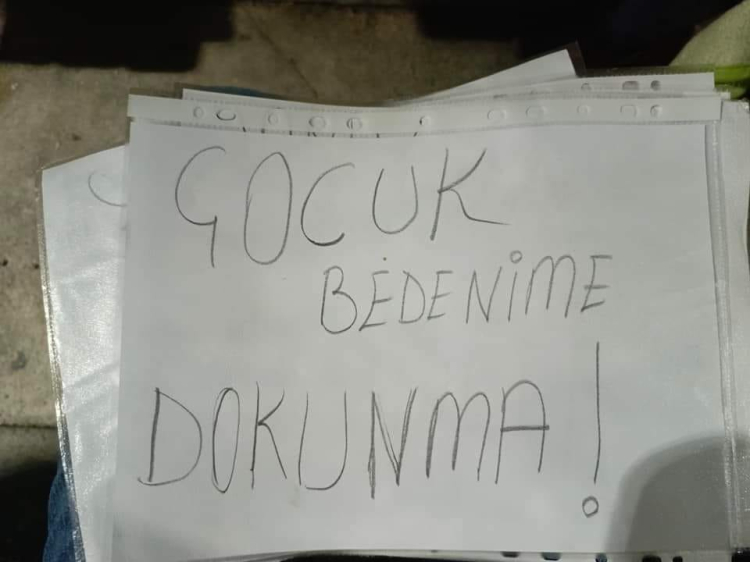 ÇOCUK
BEDENİME
DOKUNMA!